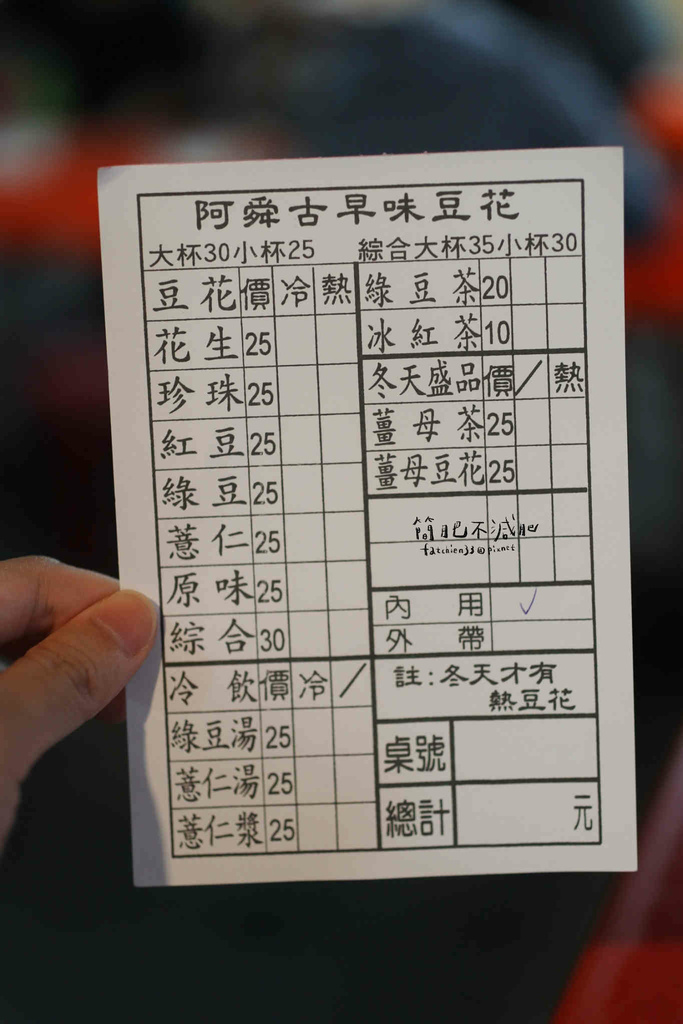 阿舜古早味豆花
大杯30小杯25 綜合大杯35小杯30
豆花 價 冷 熱
花生 25
珍珠 25
紅豆 25
綠豆 25
薏仁 25
原味 25
綜合 30
冷飲 價 冷 /
綠豆湯 25
薏仁湯 25
薏仁漿 25
綠豆茶 20
冰紅茶 10
冬天盛品 價 / 熱
薑母茶 25
薑母豆花 25
簡肥不減肥
tatchien33@pixnet
內用 ✓
外帶
註:冬天才有
熱豆花
桌號
總計 元